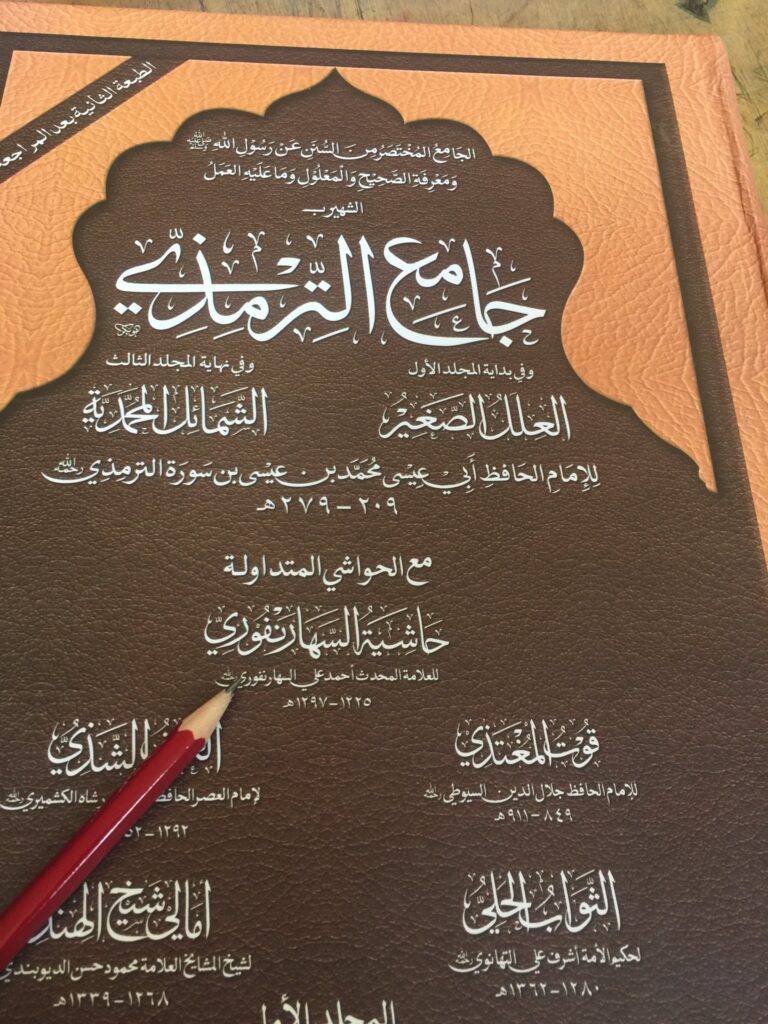 الطبعة الثانية بعد المراجعة
الجَامِعُ المُخْتَصَرُ مِنَ السُّنَنِ عَنْ رَسُوْلِ اللهِ ﷺ
وَمَعْرِفَةِ الصَّحِيْحِ وَالْمَعْلُوْلِ وَمَا عَلَيْهِ العَمَلُ
الشهير ب
جَامِعُ التِّرْمِذِيّ
وفي بداية المجلد الأول
وفي نهاية المجلد الثالث
العِلَلُ الصَّغِيْرُ
الشَّمَائِلُ المُحَمَّدِيَّة
لِلإمَامِ الحَافِظِ أَبِي عِيْسَى مُحَمَّد بن عِيْسَى بن سَوْرَة الترمذي رحمه الله
٢٠٩ - ٢٧٩ هـ
مع الحواشي المتداولة
حَاشِيَةُ السَّهَارَنْفُورِيّ
للعلامة المحدث أحمد علي السهارنفوري رحمه الله
١٢٢٥-١٢٩٧هـ
قُوْتُ المُغْتَذِي
الشَّذِيّ
للإمام الحافظ جلال الدين السيوطي رحمه الله
لإمام العصر الحافظ شاه الكشميري رحمه الله
٨٤٩-٩١١هـ
١٢٩٢-
الثَّوَابُ الحَلِيُّ
أمَالِي شَيْخِ الهند
لحكيم الأمة أشرف علي التهانوي رحمه الله
لشيخ المشايخ العلامة محمود حسن الديوبندي
١٢٨٠-١٣٦٢هـ
١٢٦٨-١٣٣٩هـ
المجلد الأول